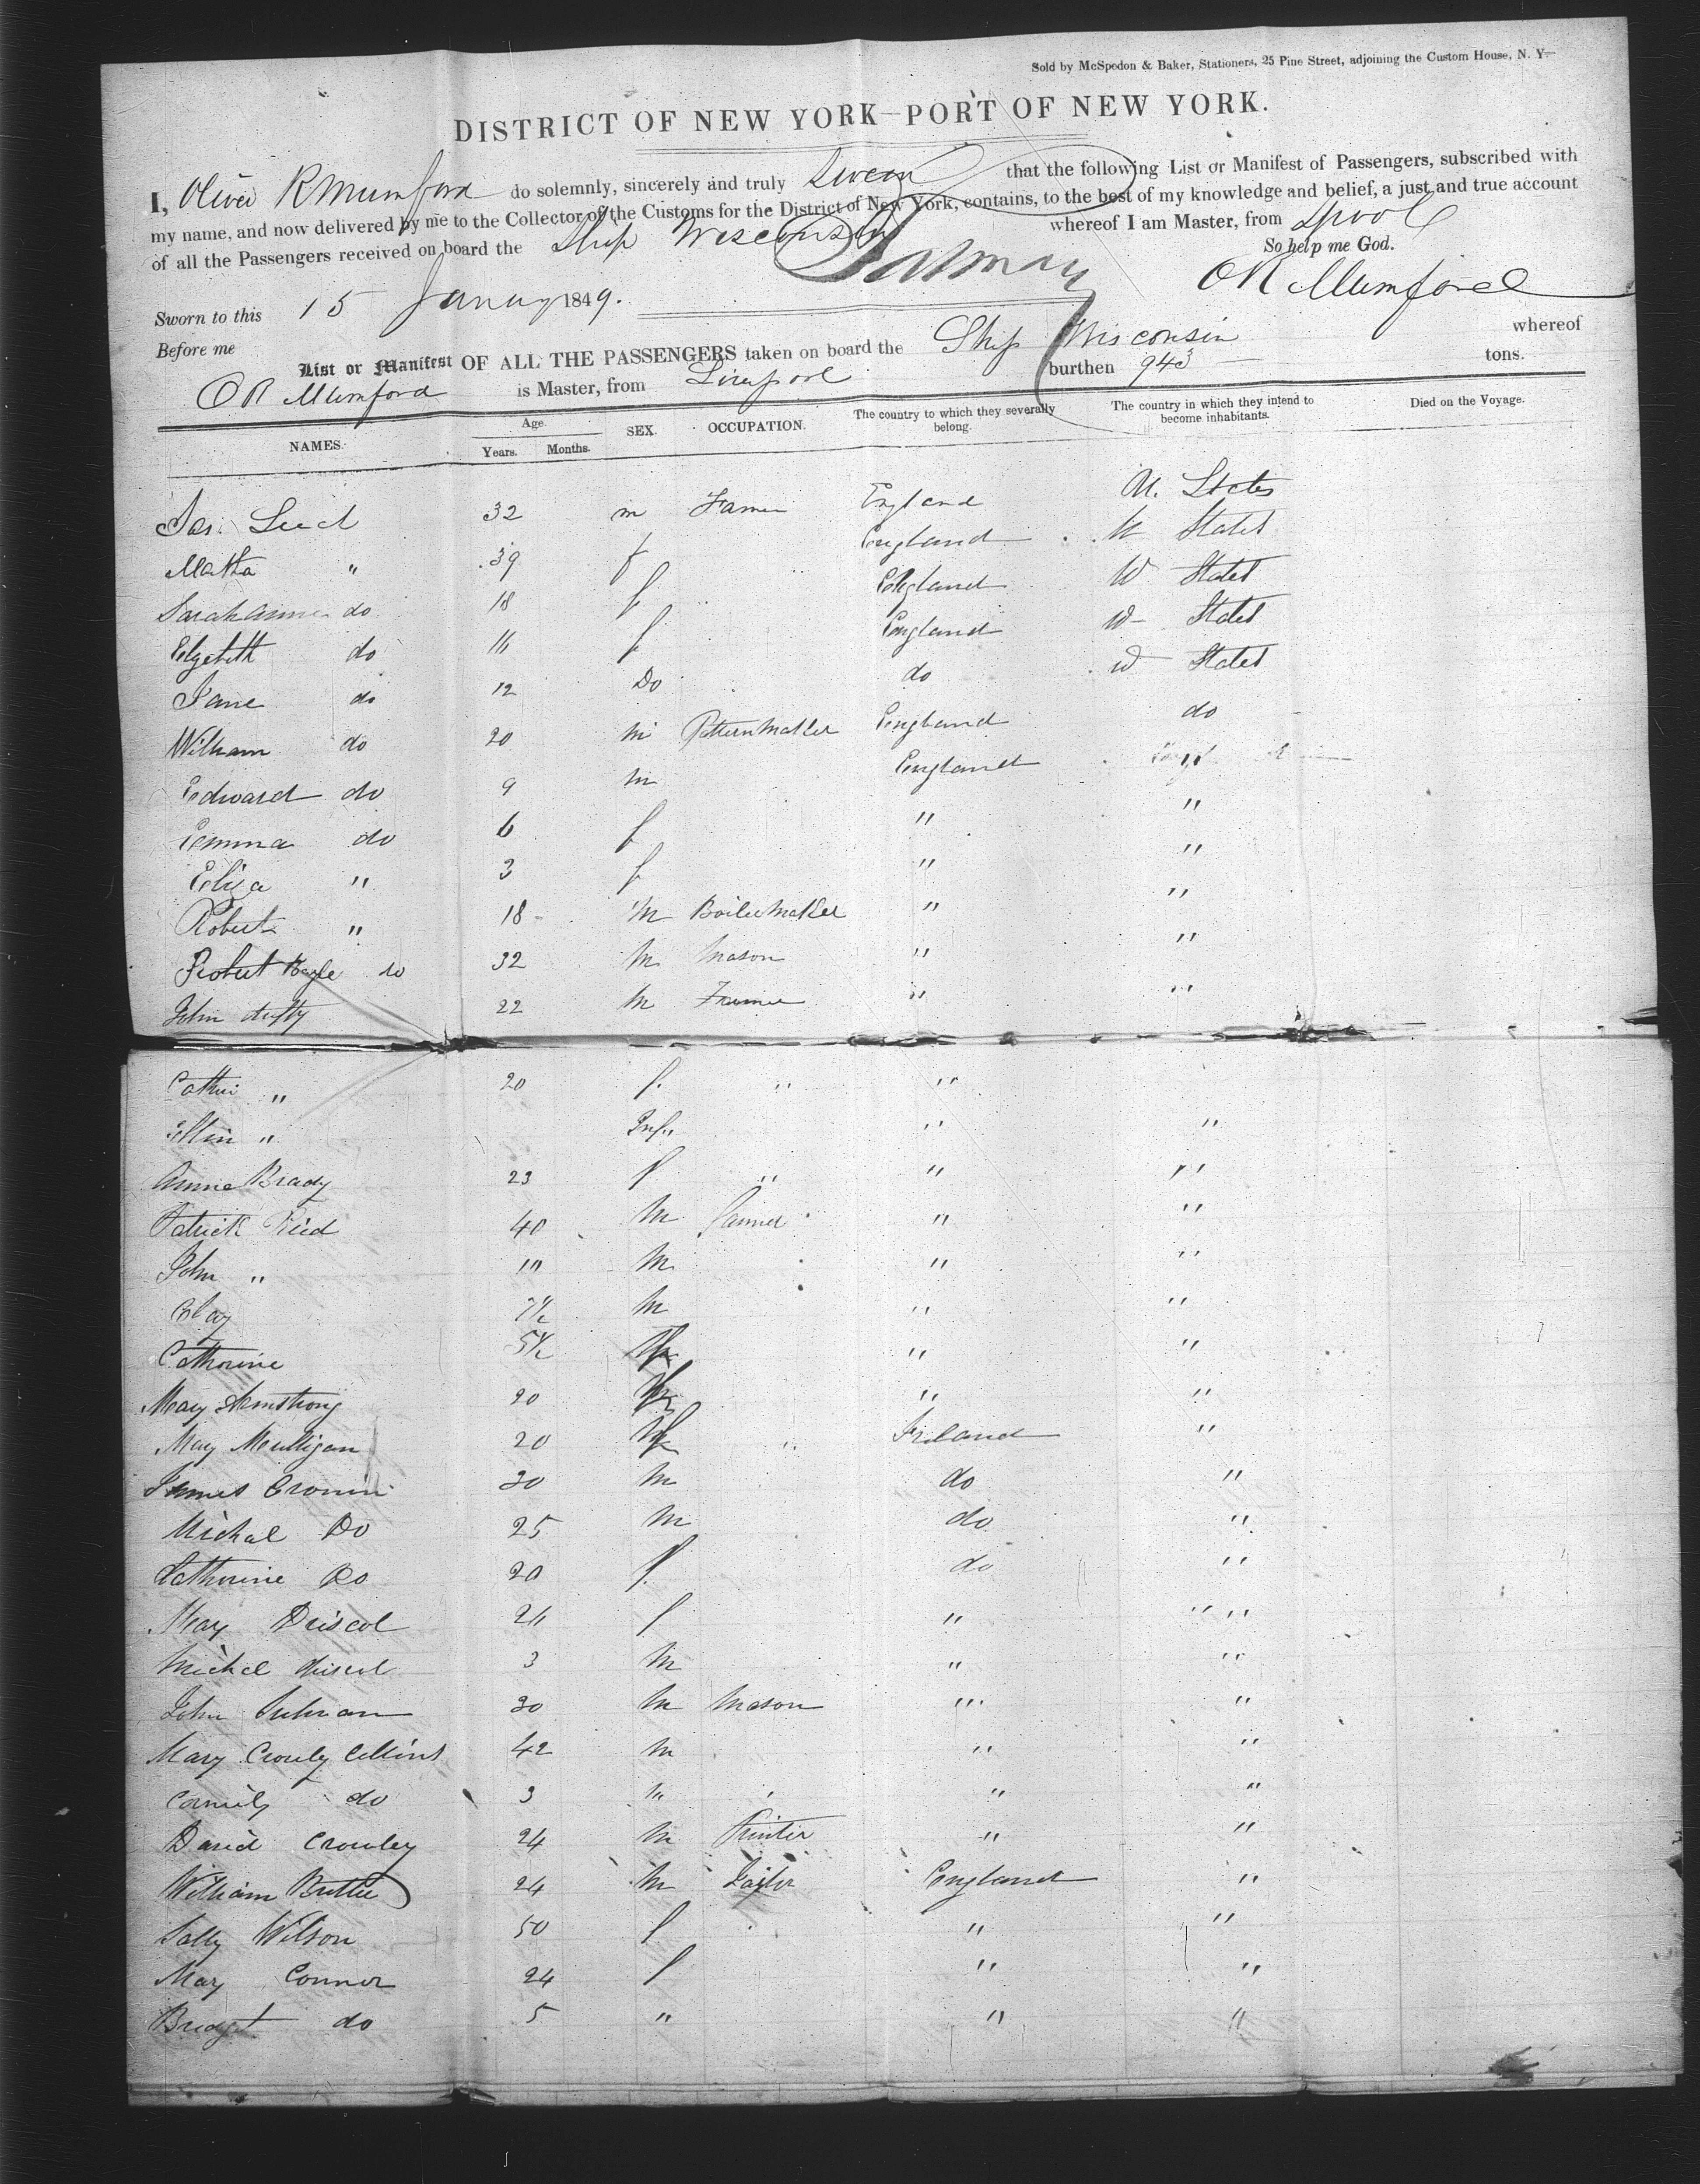 Sold by McSpedon & Baker, Stationers, 25 Pine Street, adjoining the Custom House, N. Y.
DISTRICT OF NEW YORK—PORT OF NEW YORK.
I, Oliver R Mumford do solemnly, sincerely and truly Swear that the following List or Manifest of Passengers, subscribed with
my name, and now delivered by me to the Collector of the Customs for the District of New York, contains, to the best of my knowledge and belief, a just and true account
of all the Passengers received on board the Ship Wisconsin whereof I am Master, from Lpool
So help me God.
Sworn to this 15 January 1849. O R Mumford
Before me
List or Manifest OF ALL THE PASSENGERS taken on board the Ship Wisconsin whereof
O R Mumford is Master, from Liverpool burthen 943 tons.
NAMES. Age. Years. Months. SEX. OCCUPATION. The country to which they severally belong. The country in which they intend to become inhabitants. Died on the Voyage.
Jas. 32 m Farmer England U. States
Martha " 39 f England U States
Sarah Anne do 18 f England U States
Elizebeth do 16 f England U States
Jane do 12 Do do U States
William do 20 m Pattern Maker England do
Edward do 9 m England "
Emma do 6 f " "
Eliza " 3 f " "
Robert " 18 M Boiler Maker " "
Robert do 32 M Mason " "
John 22 M Farmer " "
" 20 f. " "
" Inf. " "
Anne Brady 23 f " " "
Patrick Reid 40 M Farmer " "
John " M " "
7½ M " "
Catherine 5½ " "
Mary Armstrong 20 " "
Mary Mulligan 20 " Ireland "
James Cronin 30 M do "
Michal Do 25 M do "
Catherine Do 20 f. do "
Mary Driscol f " " "
Michel driscol 3 M " "
John 30 M Mason " "
Mary Crouly Collins 42 M " "
do 3 " " "
David Crowley 24 M Printer " "
William 24 M Tailor England "
Sally Wilson 50 f " "
Mary Connor 24 f " "
Bridget do 5 " " "